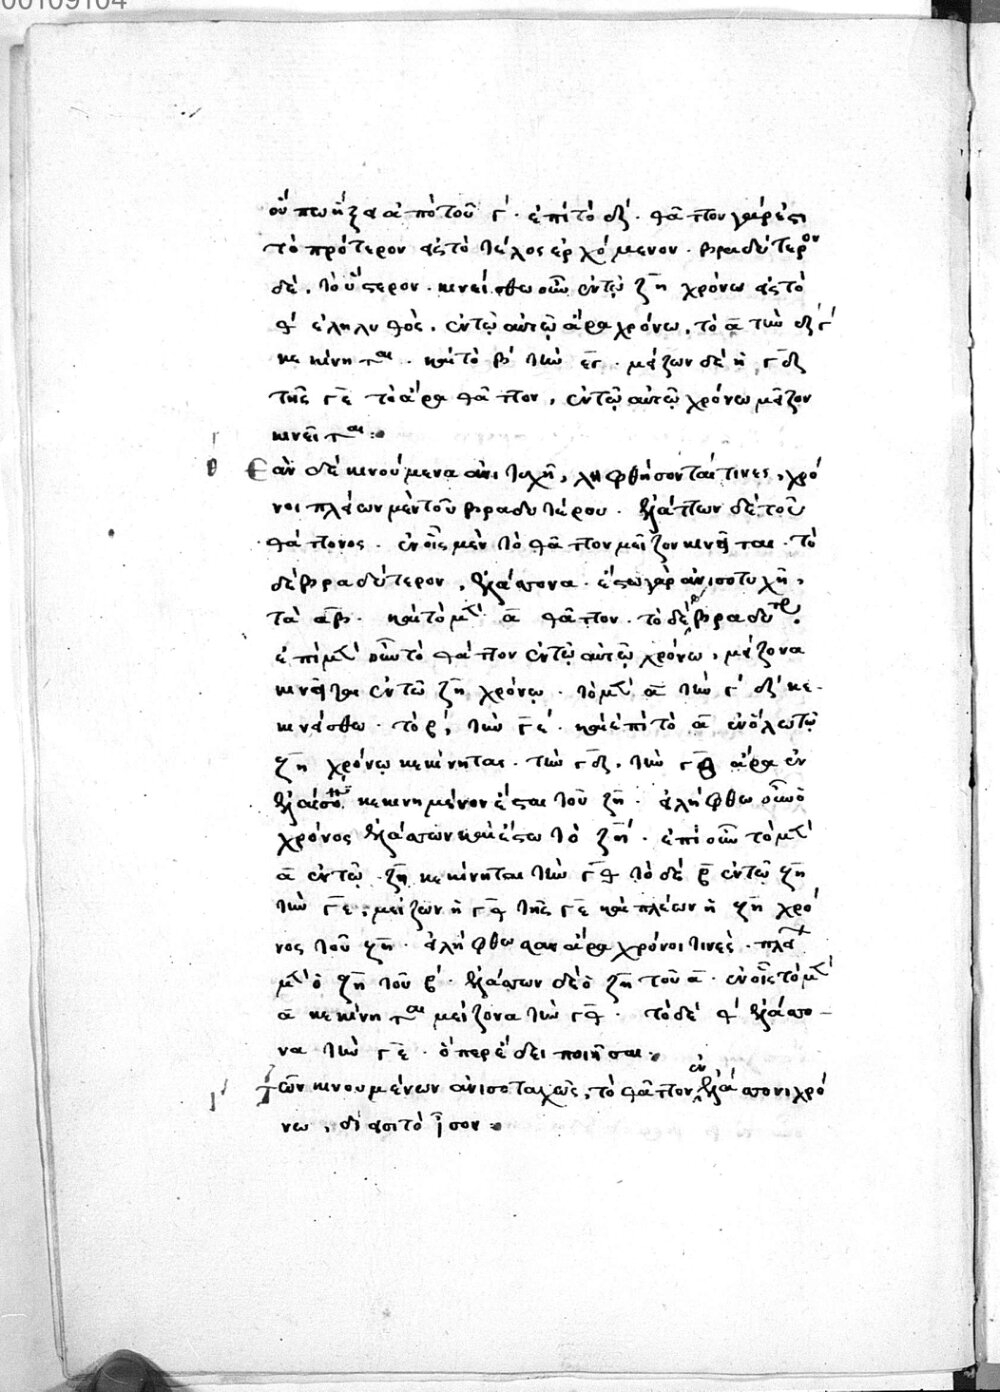 00109104
οὔπω ἥξει ἀπὸ τοῦ γ´ · ἐπὶ τὸ δζ´ · θᾶττον γάρ ἐστι
τὸ πρότερον εἰς τὸ τέλος ἐρχόμενον · βραδύτερον
δέ, τὸ ὕστερον · κινείσθω οὖν ἐν τῷ ζη χρόνω εἰς τὸ
θ´ ἐληλυθός, ἐν τῷ αὐτῷ ἄρα χρόνω, τὸ α τὴν
κεκίνηται · καὶ τὸ β´ τὴν εγ · μείζων δὲ ἡ γδζ
τῆς γε τὸ ἄρα θᾶττον, ἐν τῷ αὐτῷ χρόνω μεῖζον
κινεῖται :
θ Ἐὰν δὲ κινούμενα ἀνιταχῆ, ληφθήσονταί τινες, χρό
νοι πλείων μὲν τοῦ βραδυτέρου · ἐλάττων δὲ τοῦ
θάττονος · ἐν οἷς μὲν τὸ θᾶττον μεῖζον κινεῖται · τὸ
δὲ βραδύτερον, ἐλάττονα · ἔστω γὰρ ἀνισοταχῆ,
τὰ αβ · καὶ τὸ μὲν α θᾶττον · τὸ δὲ β βραδύτερον ·
ἐπεὶ μὲν οὖν τὸ θᾶττον ἐν τῷ αὐτῷ χρόνω, μείζονα
κινεῖται ἐν τῷ ζη χρόνῳ · τὸ μὲν α τὴν γ´ δζ´ κε
κινείσθω · τὸ β, τὴν γε´ · καὶ ἐπεὶ τὸ α ἐν ὅλω τῷ
ζη χρόνῳ κεκίνηται · τὴν γδζ, τὴν γθ ἄρα ἐν
ἐλάσσονι κεκινημένον ἔσται τοῦ ζη · εἰλήφθω οὖν ὁ
χρόνος ἐλάττων καὶ ἔστω τὸ ζη · ἐπεὶ οὖν τὸ μὲν
α ἐν τῷ ζη κεκίνηται τὴν γθ τὸ δὲ β ἐν τῷ ζη
τὴν γε, μείζων ἡ γθ τῆς γε καὶ πλείων ἡ ζη χρό
νος τοῦ ζη · εἰλήφθωσαν ἄρα χρόνοι τινὲς · πλεί
μὲν ὁ ζη τοῦ β´ · ἐλάττων δὲ ὁ ζη τοῦ α · ἐν οἷς τὸ μὲν
α κεκίνηται μείζονα τὴν γθ · τὸ δὲ ἐλάττο
να τὴν γε · ὅπερ ἔδει ποιῆσαι :
ι´ Τῶν κινουμένων ἀνισοταχῶς, τὸ θᾶττον ἐν ἐλάττονι χρό
νω, δίεισι τὸ ἴσον :